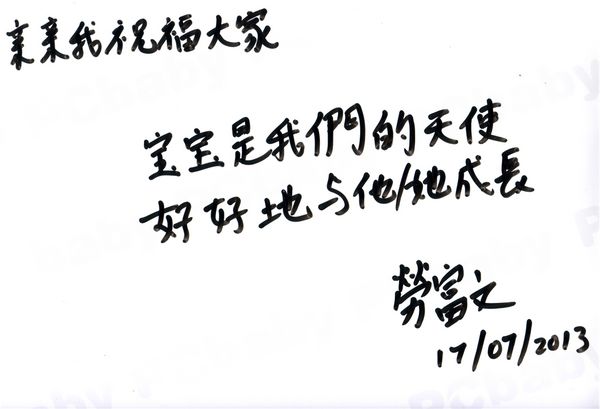 亲亲我祝福大家
宝宝是我們的天使
好好地与他/她成長
勞富文
17/07/2013